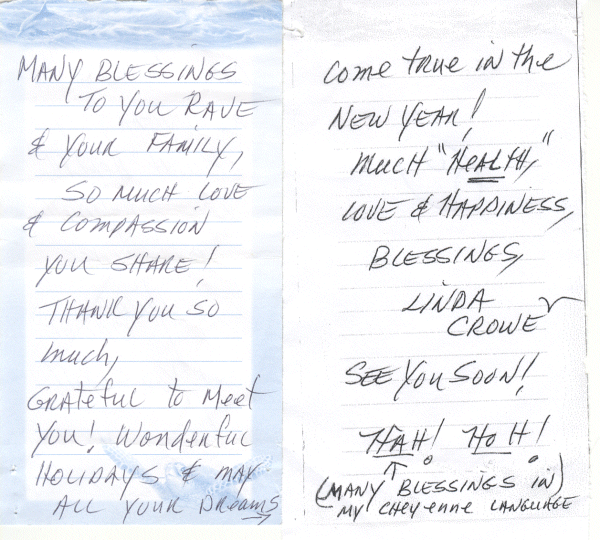 MANY BLESSINGS
TO YOU RAVE
& YOUR FAMILY,
SO MUCH LOVE
& COMPASSION
YOU SHARE!
THANK YOU SO
much,
GRAteful to Meet
You! Wonderful
HOLIDAYS & MAY
ALL YOUR Dreams →
come true in the
NEW YEAR!
MUCH "HeALTH,"
LOVE & HAPPINESS,
BLESSINGS,
LINDA
CROWE
SEE YOU SOON!
HAH! HOH!
↑
(MANY BLESSINGS IN)
MY CHEYENNE LANGUAGE